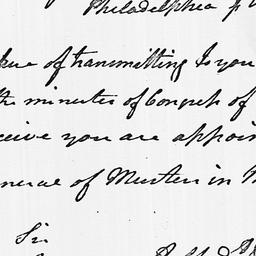 Philadelphia
of transmitting to you
the minutes of Congress of
ceive you are appoin
neral of Musters in
Sir